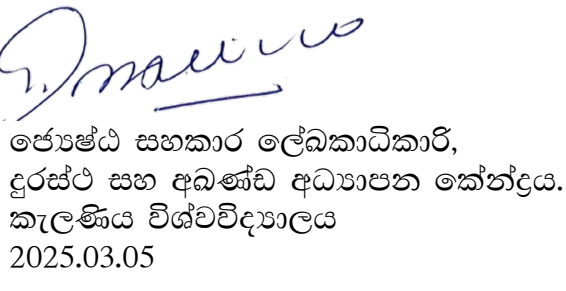 ජ්‍යෙෂ්ඨ සහකාර ලේඛකාධිකාරි,
දුරස්ථ සහ අඛණ්ඩ අධ්‍යාපන කේන්ද්‍රය.
කැලණිය විශ්වවිද්‍යාලය
2025.03.05